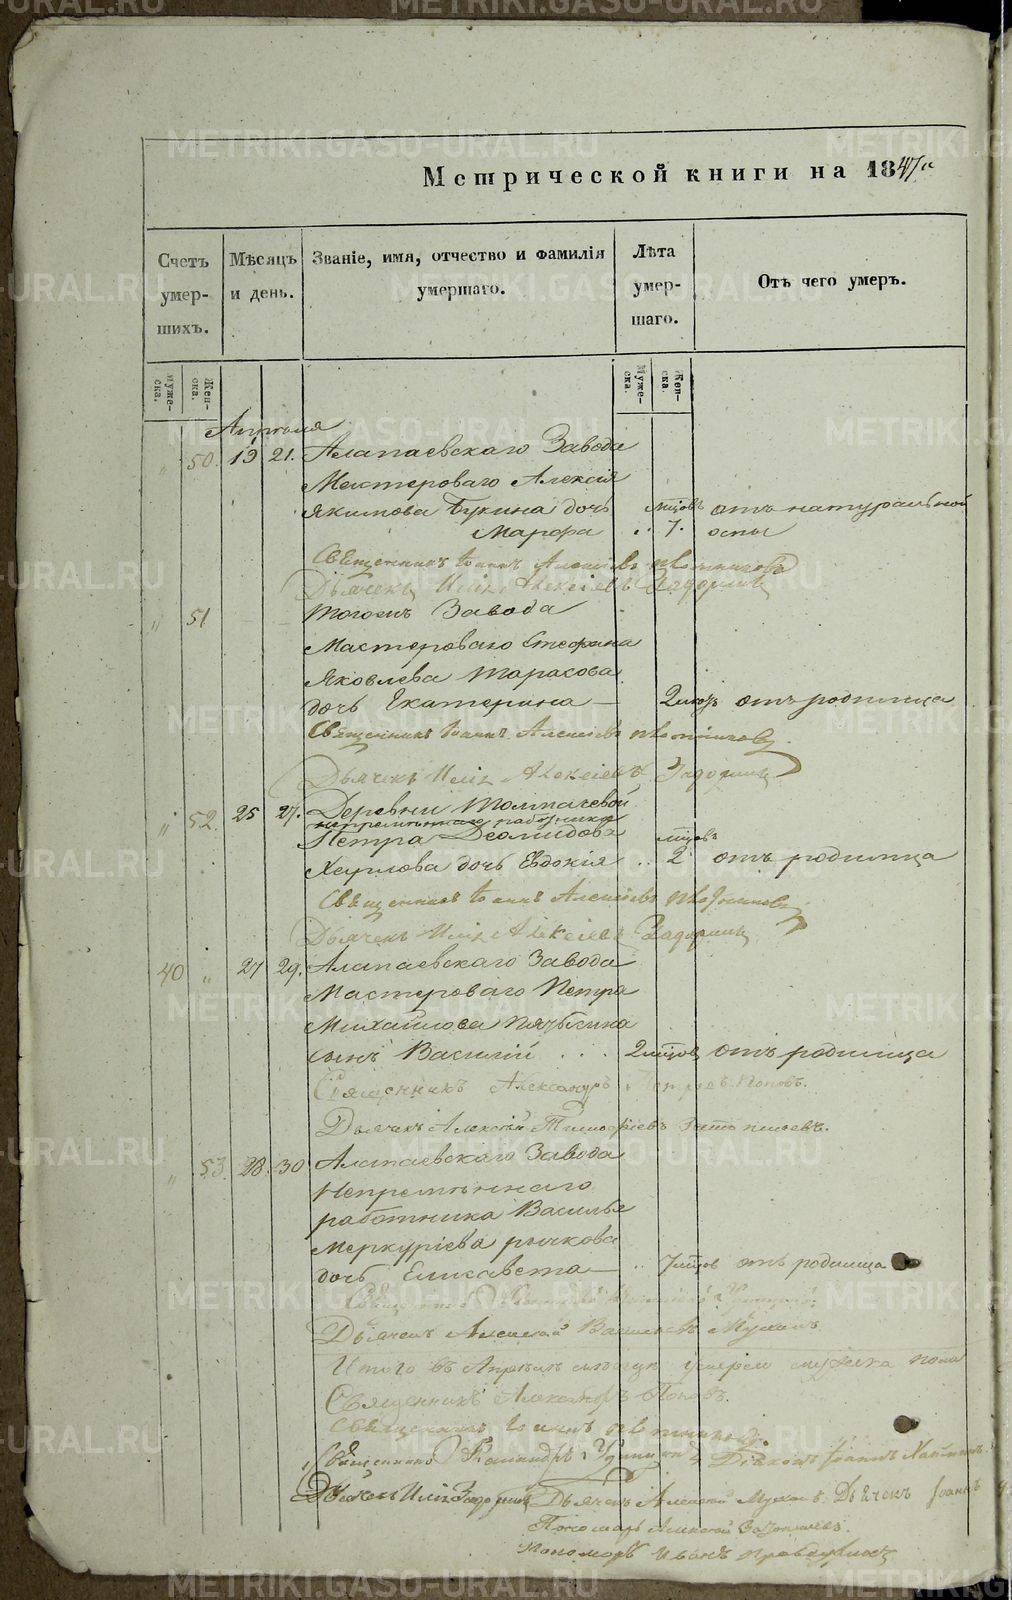 Метрической книги на 1847й
Счетъ умер-шихъ.
Мѣсяцъ и день.
Званіе, имя, отчество и фамилія умершаго.
Лѣта умер-шаго.
Отъ чего умеръ.
муже-ска.
Жен-ска.
Муже-ска.
Жен-ска.
Апреля
" 50. 19 21. Алапаевскаго Завода
Мастероваго Алексія
Якимова Букина дочь мѣцовъ отъ натуральной
Марфа .. 7. оспы
Священникъ Іоаннъ Алексіевъ
Дьячекъ Илія Алексіевъ Задоринъ
" 51 тогожъ Завода
Мастероваго Стефана
Яковлева Тарасова
дочь Екатерина — 2 мцовъ отъ родимца
Священникъ Іоаннъ Алексіевъ
Дьячекъ Илія Алексіевъ Задоринъ
" 52. 25 27. Деревни Толмачевой
непремѣннаго работника
Петра Деомидова мѣцовъ
Харлова дочь Евдокія .. 2 отъ родимца
Священникъ Іоаннъ Алексіевъ
Дьячекъ Илія Алексіевъ Задоринъ
40 " 27 29. Алапаевскаго Завода
Мастероваго Петра
Михайлова
сынъ Василій . . . 2 мцовъ отъ родимца
Священникъ Александръ Петровъ Поповъ.
Дьячекъ Алексій Тимофіевъ
" 53. 28. 30 Алапаевскаго Завода
Непремѣннаго
работника Василья
Меркуріева рычкова
дочь Елисавета — .. 7 мцов отъ родимца
Священникъ
Дьячекъ Алексій Васильевъ Мухинъ
Итого въ Апрѣлѣ мѣсяцѣ умерло мужеска пола
Священникъ Александръ Поповъ.
Священникъ Іоаннъ
Священникъ Діаконъ Іоаннъ
Дьячекъ Илія Задоринъ Дьячекъ Алексій Мухинъ. Дьячекъ Іоаннъ
Пономарь Алексій
Пономарь Иванъ